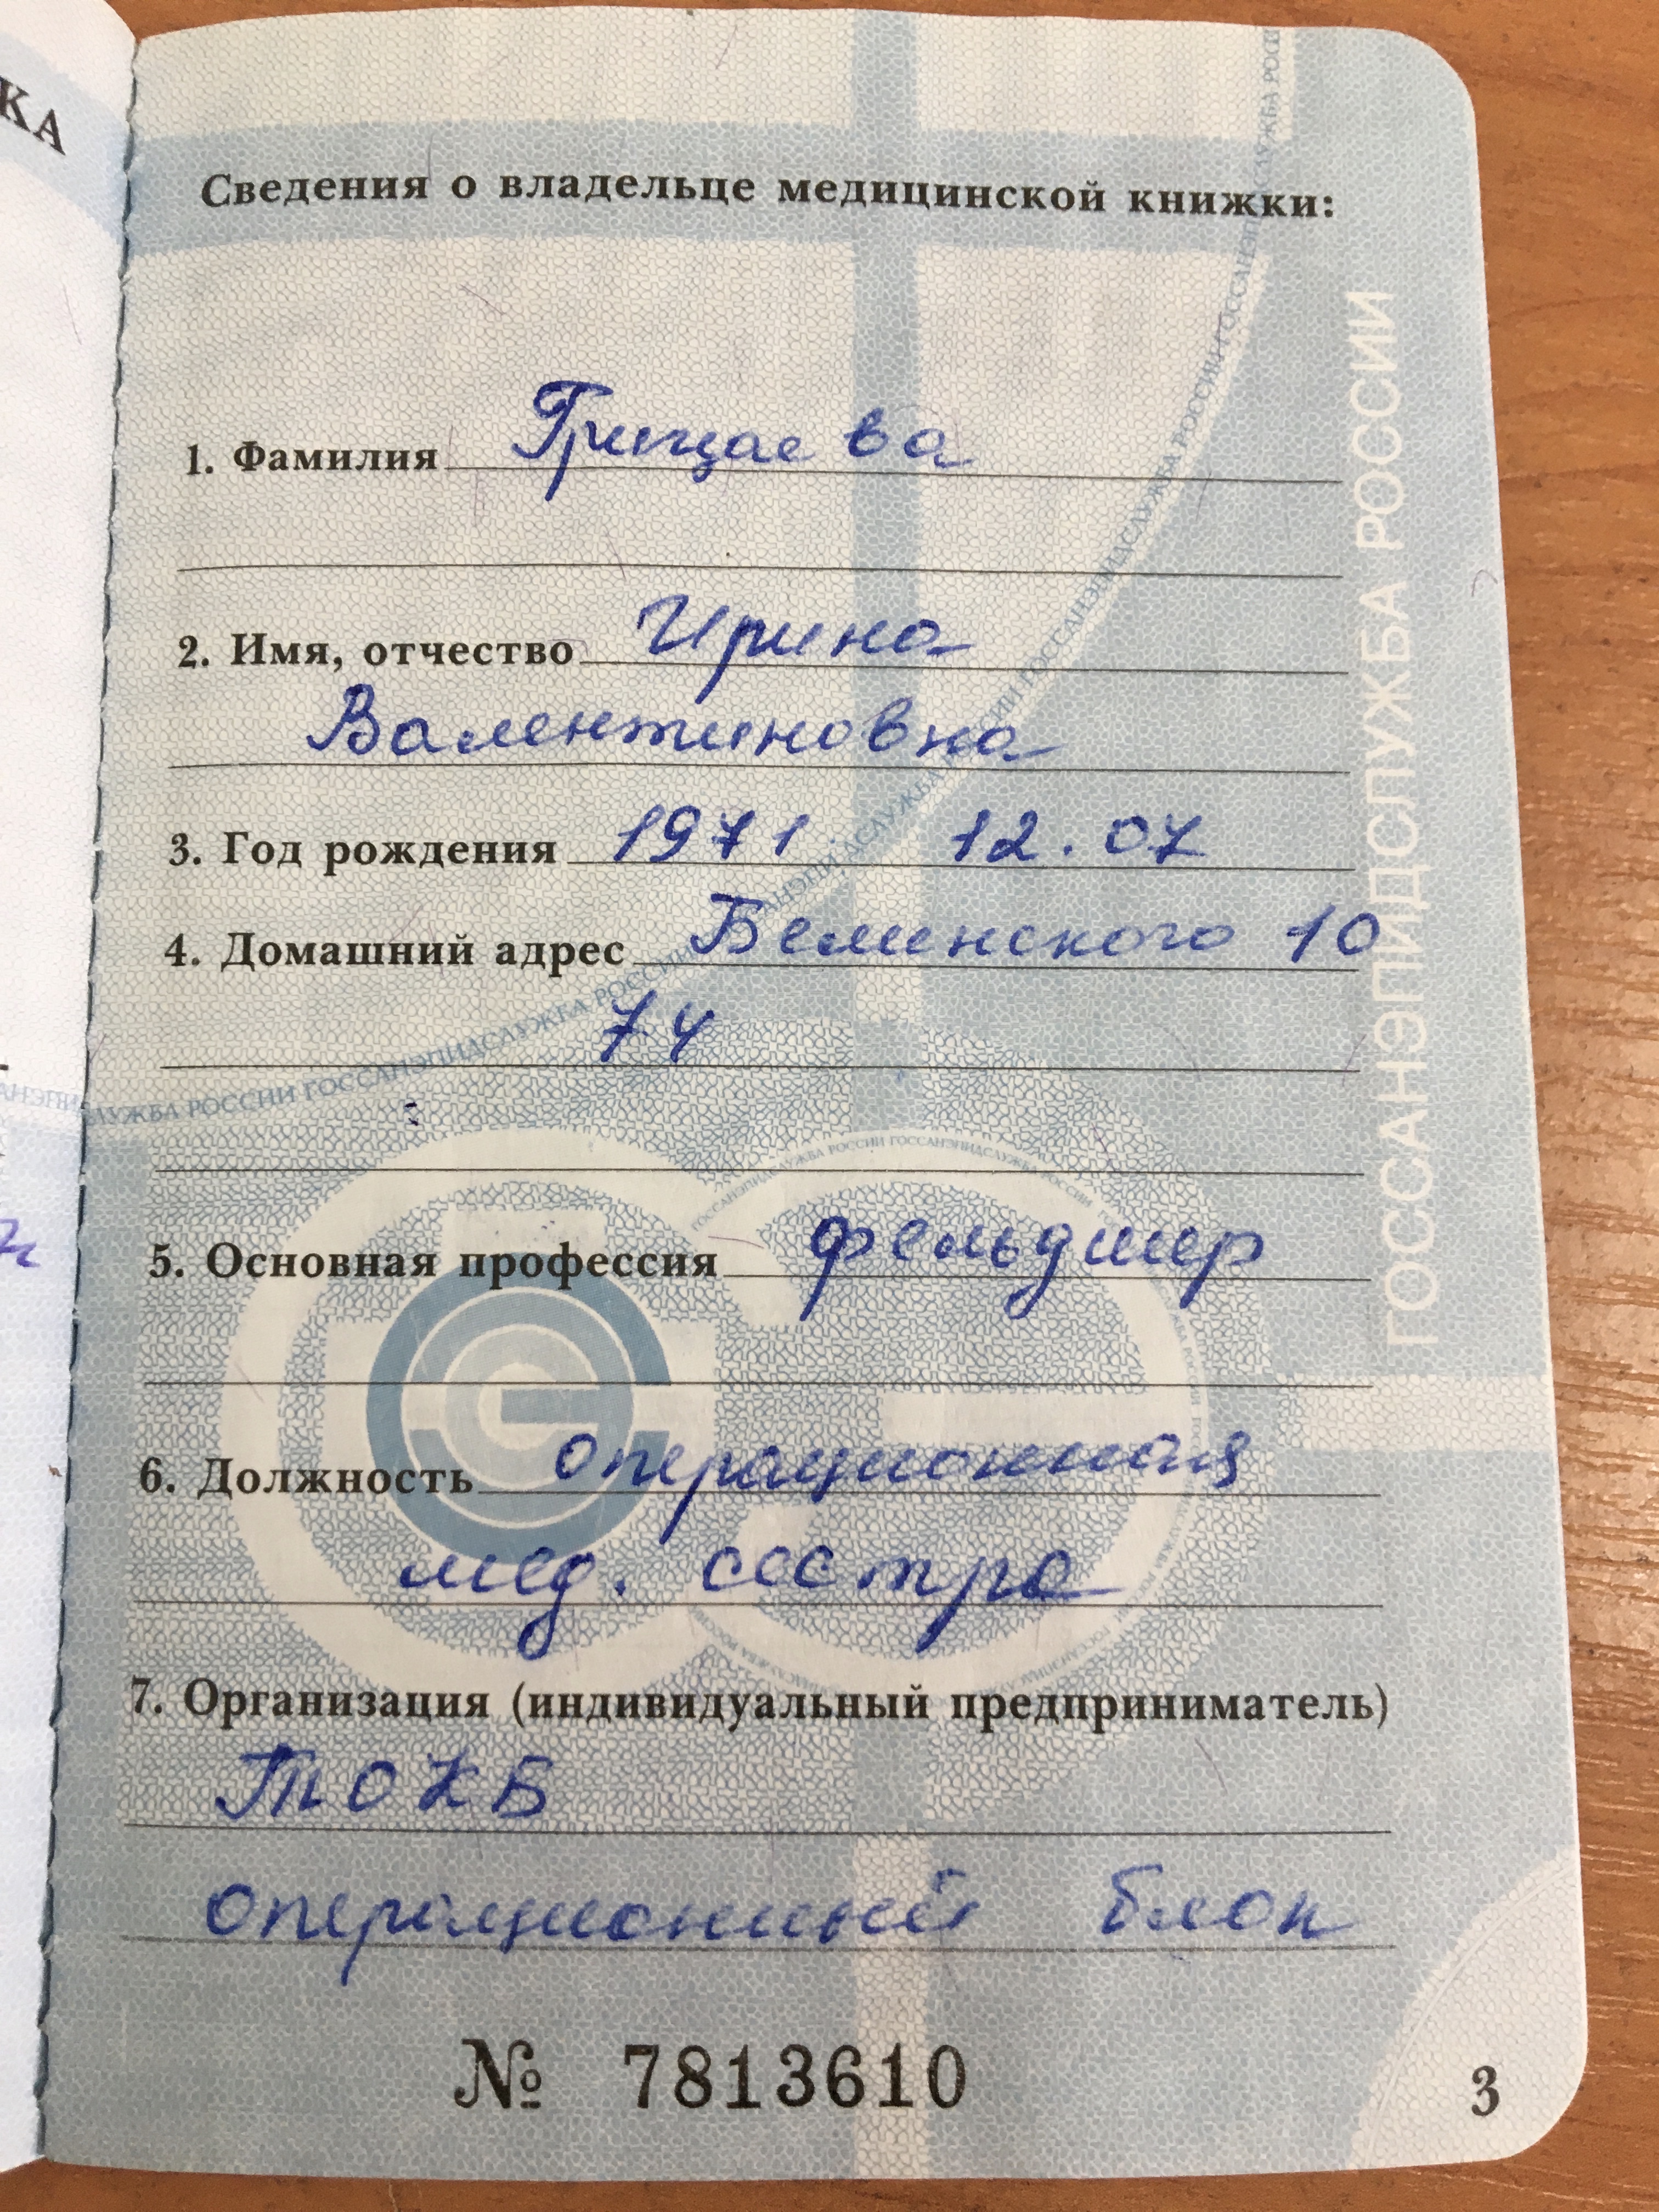 КА
Сведения о владельце медицинской книжки:
1. Фамилия Грицаева
2. Имя, отчество Ирина
Валентиновна
3. Год рождения 1971. 12.07
4. Домашний адрес Белинского 10
74
5. Основная профессия фельдшер
6. Должность операционная
мед. сестра
7. Организация (индивидуальный предприниматель)
ТОКБ
операционный блок
№ 7813610
3
ГОССАНЭПИДСЛУЖБА РОССИИ